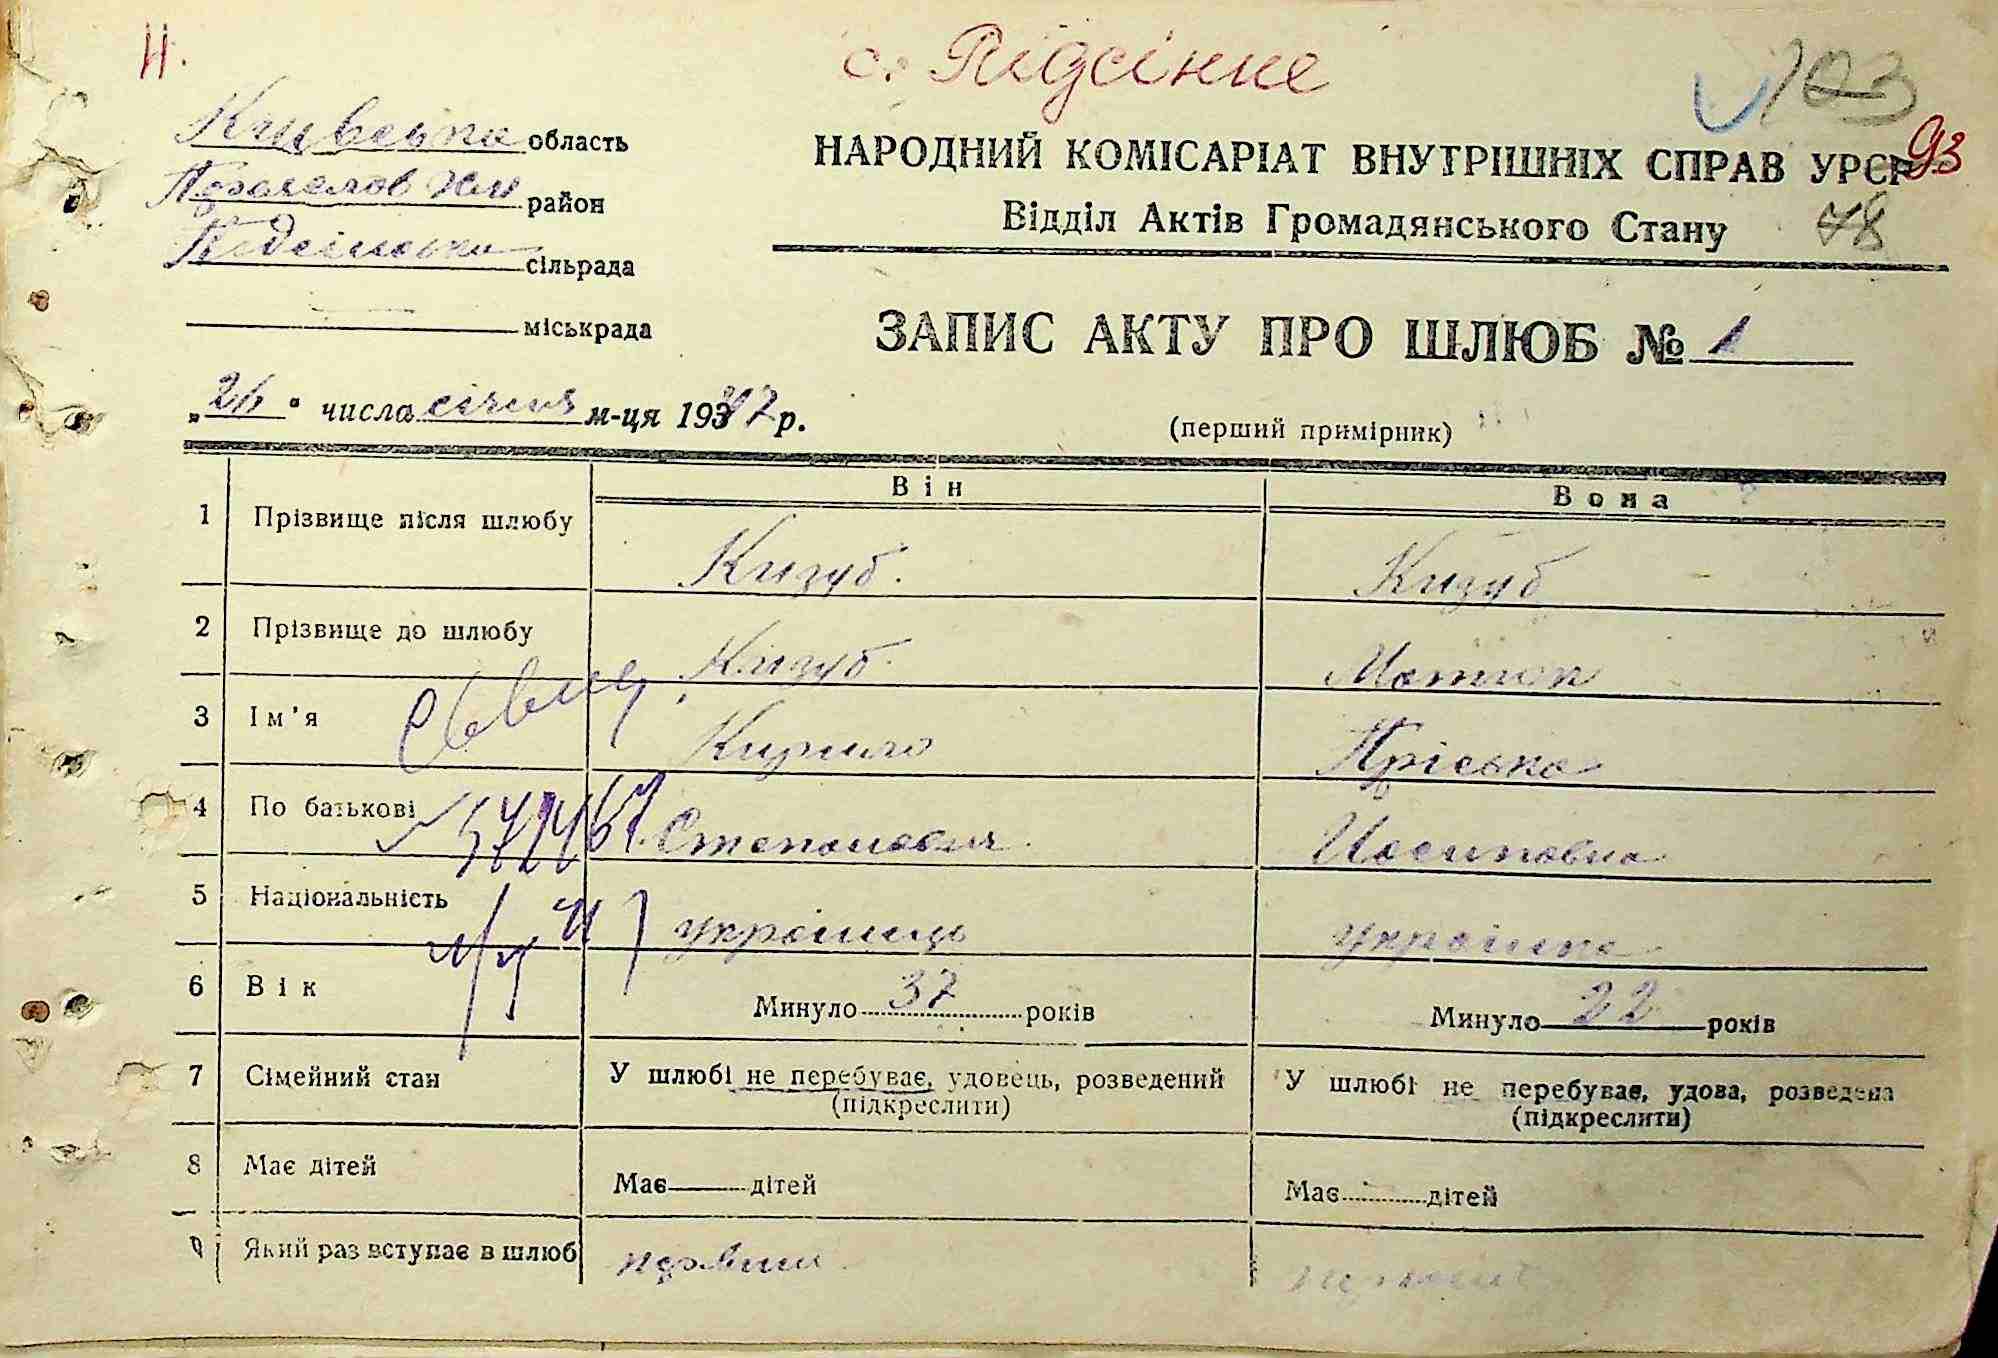 Н.
с. Підсінне
103
93
78
Київська область
район
Підсінська сільрада
міськрада
НАРОДНИЙ КОМІСАРІАТ ВНУТРІШНІХ СПРАВ УРСР
Відділ Актів Громадянського Стану
ЗАПИС АКТУ ПРО ШЛЮБ № 1
„26“ числа січня м-ця 1947 р.
(перший примірник)
Він
Вона
1 Прізвище після шлюбу Кизуб. Кизуб
2 Прізвище до шлюбу Кизуб. Матюп
3 Ім'я Кирило Пріська
4 По батькові Степанович. Йосиповна
5 Національність українець українка
6 Вік Минуло 37 років Минуло 22 років
7 Сімейний стан У шлюбі не перебуває, удовець, розведений У шлюбі не перебуває, удова, розведена
(підкреслити) (підкреслити)
8 Має дітей Має дітей Має дітей
9 Який раз вступає в шлюб первий